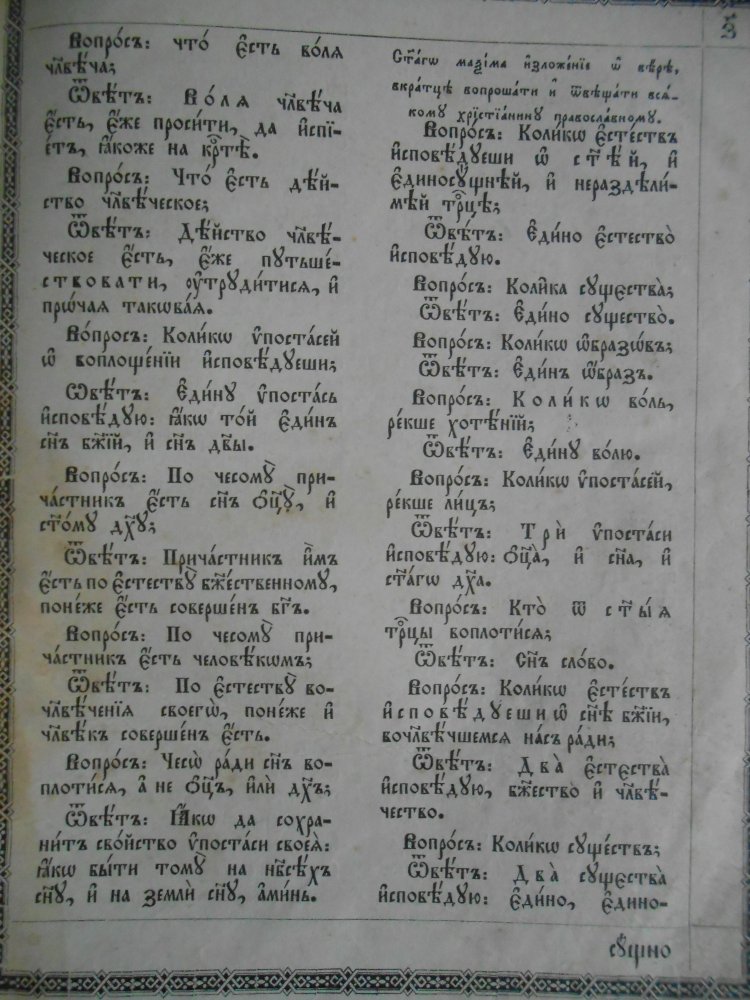 з҃
Вопро́съ: что̀ є҆́сть во́лѧ
чл҃вѣ́ча;
Ѿвѣ́тъ: Во́лѧ чл҃вѣ́ча
є҆́сть, є҆́же проси́ти, да и҆спі-
е́тъ, ꙗ҆́коже на крⷭ҇тѣ̀.
Вопро́съ: Что̀ є҆́сть дѣ́й-
ство чл҃вѣ́ческое;
Ѿвѣ́тъ: Дѣ́йство чл҃вѣ́-
ческое є҆́сть, є҆́же путьше́-
ствовати, ᲂу҆труди́тисѧ, и҆
прѡ́чаѧ такѡва́ѧ.
Во́просъ: Коли́кѡ ѵ҆поста́сей
ѡ҆ воплоще́нїи и҆сповѣ́дуеши;
Ѿвѣ́тъ: Є҆ди́ну ѵ҆поста́сь
и҆сповѣ́дую: ꙗ҆́кѡ то́й є҆ди́нъ
сн҃ъ бж҃їй, и҆ сн҃ъ дв҃ы.
Вопро́съ: По чесомꙋ̀ при-
ча́стникъ є҆́сть сн҃ъ ѻ҆ц҃ꙋ̀, и҆
ст҃о́му дх҃ꙋ;
Ѿвѣ́тъ: Прича́стникъ и҆̀мъ
є҆́сть по є҆стествꙋ̀ бж҃е́ственному,
поне́же є҆́сть соверше́нъ бг҃ъ.
Вопро́съ: По чесомꙋ̀ при-
ча́стникъ є҆́сть человѣ́кѡмъ;
Ѿвѣ́тъ: По є҆стествꙋ̀ во-
чл҃вѣ́ченїѧ своегѡ̀, поне́же и҆
чл҃вѣ́къ соверше́нъ є҆́сть.
Вопро́съ: Чесѡ̀ ра́ди сн҃ъ во-
плоти́сѧ, а҆ не ѻ҆ц҃ъ, и҆лѝ дх҃ъ;
Ѿвѣ́тъ: Ꙗ҆́кѡ да сохра-
ни́тъ сво́йство ѵ҆поста́си своеѧ̀:
ꙗ҆́кѡ бы́ти томꙋ̀ на нб҃сѣ́хъ
сн҃ꙋ, и҆ на землѝ сн҃ꙋ, а҆ми́нь.
Ст҃а́гѡ маѯі́ма и҆зложе́нїе ѡ҆ вѣ́рѣ,
вкра́тцѣ вопроша́ти и҆ ѿвѣща́ти всѧ́-
кому хрїстїа́нину правосла́вному.
Вопро́съ: Коли́кѡ є҆сте́ствъ
и҆сповѣ́дуеши ѡ҆ ст҃ѣ́й, и҆
є҆диносꙋ́щнѣй, и҆ нераздѣли́-
мѣй трⷪ҇цѣ;
Ѿвѣ́тъ: Є҆ди́но є҆стество̀
и҆сповѣ́дую.
Вопро́съ: Коли́ка существа̀;
Ѿвѣ́тъ: Є҆ди́но существо̀.
Вопро́съ: Коли́кѡ ѡ҆́бразѡвъ;
Ѿвѣ́тъ: Є҆ди́нъ ѡ҆́бразъ.
Вопро́съ: Коли́кѡ во́ль,
ре́кше хотѣ́нїй;
Ѿвѣ́тъ: Є҆ди́ну во́лю.
Вопро́съ: Коли́кѡ ѵ҆поста́сей,
ре́кше ли́цъ;
Ѿвѣ́тъ: Трѝ ѵ҆поста́си
и҆сповѣ́дую: ѻ҆ц҃а̀, и҆ сн҃а, и҆
ст҃а́гѡ дх҃а.
Вопро́съ: Кто̀ ѿ ст҃ы́ѧ
трⷪ҇цы воплоти́сѧ;
Ѿвѣ́тъ: Сн҃ъ сло́во.
Вопро́съ: Коли́кѡ є҆сте́ствъ
и҆сповѣ́дуеши ѡ҆ сн҃ѣ бж҃їи,
вочл҃вѣ́чшемсѧ на́съ ра́ди;
Ѿвѣ́тъ: Два̀ є҆стєства̀
и҆сповѣ́дую, бж҃ество̀ и҆ чл҃вѣ́-
чество.
Вопро́съ: Коли́кѡ суще́ствъ;
Ѿвѣ́тъ: Два̀ сущєства̀
и҆сповѣ́дую: є҆ди́но, є҆дино-
сꙋ́щно